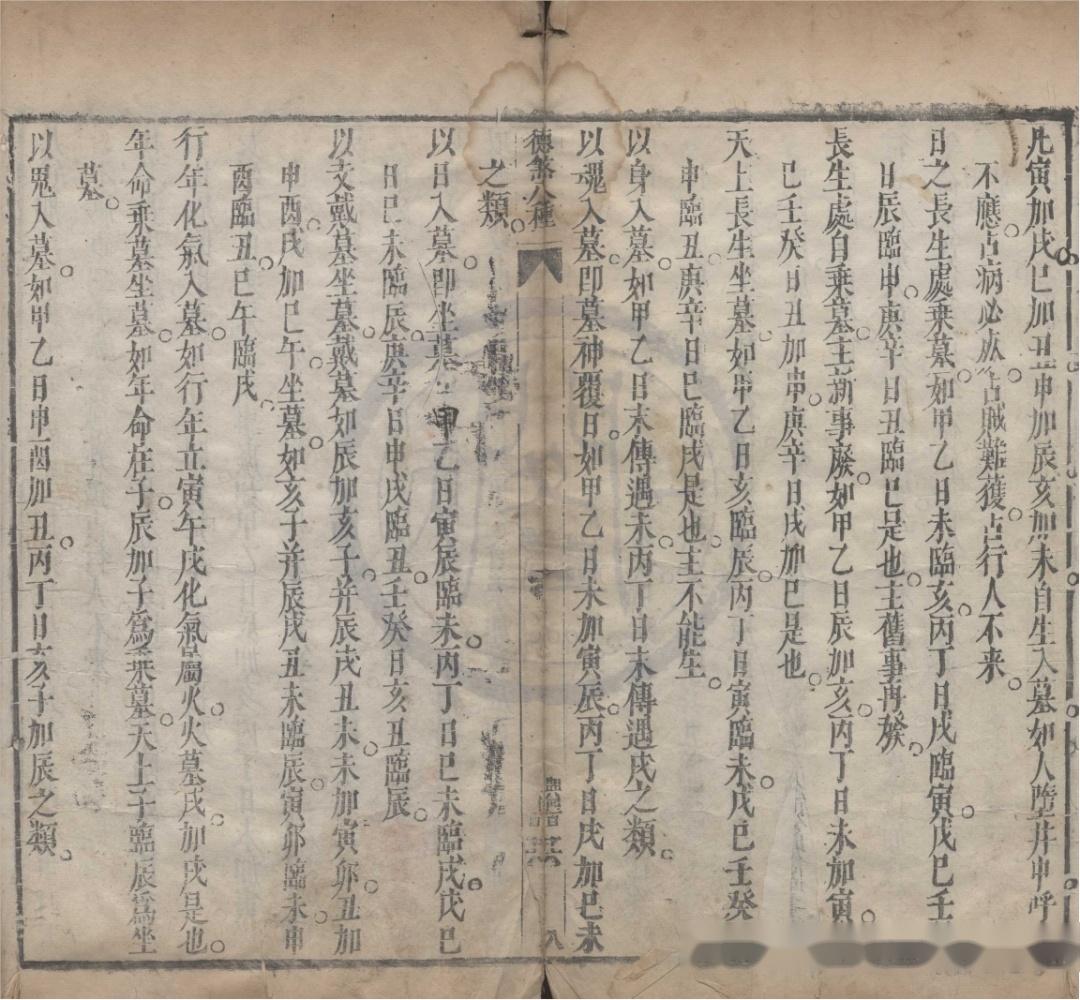 凡寅加戌巳加丑申加辰亥加未自生入墓如人墮井中呼
不應占病必死占賊難獲占行人不来
日之長生處乗墓如甲乙日未臨亥丙丁日戌臨寅戊巳壬
日辰臨申庚辛日丑臨巳是也主舊事再發
長生處自乗墓主新事廢如甲乙日辰加亥丙丁日未加寅
巳壬癸日丑加申庚辛日戌加巳是也
天上長生坐墓如甲乙日亥臨辰丙丁日寅臨未戊巳壬癸
申臨丑庚辛日巳臨戌是也主不能生
以身入墓如甲乙日末傳遇未丙丁日末傳遇戌之類
以魂入墓即墓神覆日如甲乙日未加寅辰丙丁日戌加巳未
德煞八種
八
之類
以日入墓即坐墓 甲乙日寅辰臨未丙丁日巳未臨戌戊巳
日巳未臨辰庚辛日申戌臨丑壬癸日亥丑臨辰
以支戴墓坐墓戴墓如辰加亥子并辰戌丑未未加寅卯丑加
申酉戌加巳午坐墓如亥子并辰戌丑未臨辰寅卯臨未申
酉臨丑巳午臨戌
行年化氣入墓如行年立寅午戌化氣屬火火墓戌加戌是也
年命乗墓坐墓如年命在子辰加子爲乗墓天上子臨辰爲坐
墓
以鬼入墓如甲乙日申酉加丑丙丁日亥子加辰之類